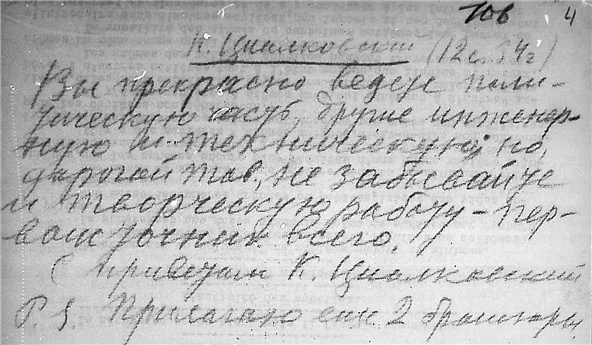 Тов 4
К. Циалковский (12 с. 34 г)
Вы прекрасно ведете поли-
тическую часть, другие инженер-
ную и техническую, но,
дорогой тов, не забывайте
и творческую работу – пер-
воисточник всего.
С приветом К. Циалковский
P. S. Прилагаю еще 2 брошюры.